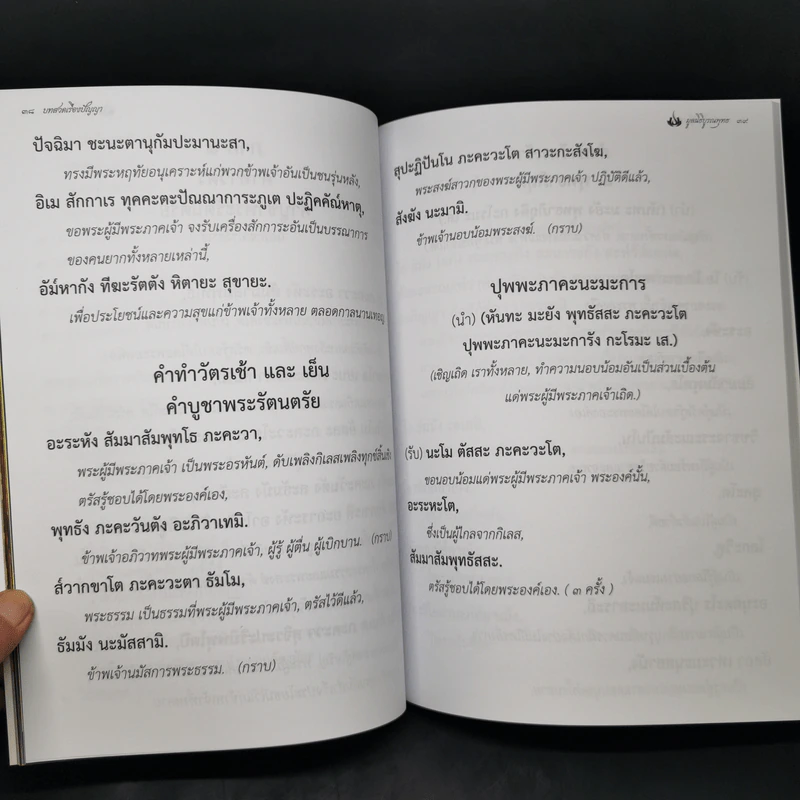 ๓๘ บทสวดเรืองปัญญา
ปัจฉิมา ชะนะตานุกัมปะมานะสา,
ทรงมีพระหฤทัยอนุเคราะห์แก่พวกข้าพเจ้าอันเป็นชนรุ่นหลัง,
อิเม สักกาเร ทุคคะตะปัณณาการะภูเต ปะฏิคคัณ๎หาตุ,
ขอพระผู้มีพระภาคเจ้า จงรับเครื่องสักการะอันเป็นบรรณาการ
ของคนยากทั้งหลายเหล่านี้,
อัม๎หากัง ทีฆะรัตตัง หิตายะ สุขายะ.
เพื่อประโยชน์และความสุขแก่ข้าพเจ้าทั้งหลาย ตลอดกาลนานเทอญ
คำทำวัตรเช้า และ เย็น
คำบูชาพระรัตนตรัย
อะระหัง สัมมาสัมพุทโธ ภะคะวา,
พระผู้มีพระภาคเจ้า เป็นพระอรหันต์, ดับเพลิงกิเลสเพลิงทุกข์สิ้นเชิง
ตรัสรู้ชอบได้โดยพระองค์เอง,
พุทธัง ภะคะวันตัง อะภิวาเทมิ.
ข้าพเจ้าอภิวาทพระผู้มีพระภาคเจ้า, ผู้รู้ ผู้ตื่น ผู้เบิกบาน. (กราบ)
ส๎วากขาโต ภะคะวะตา ธัมโม,
พระธรรม เป็นธรรมที่พระผู้มีพระภาคเจ้า, ตรัสไว้ดีแล้ว,
ธัมมัง นะมัสสามิ.
ข้าพเจ้านมัสการพระธรรม. (กราบ)
๓๙
สุปะฏิปันโน ภะคะวะโต สาวะกะสังโฆ,
พระสงฆ์สาวกของพระผู้มีพระภาคเจ้า ปฏิบัติดีแล้ว,
สังฆัง นะมามิ.
ข้าพเจ้านอบน้อมพระสงฆ์. (กราบ)
ปุพพะภาคะนะมะการ
(นำ) (หันทะ มะยัง พุทธัสสะ ภะคะวะโต
ปุพพะภาคะนะมะการัง กะโรมะ เส.)
(เชิญเถิด เราทั้งหลาย, ทำความนอบน้อมอันเป็นส่วนเบื้องต้น
แด่พระผู้มีพระภาคเจ้าเถิด.)
(รับ) นะโม ตัสสะ ภะคะวะโต,
ขอนอบน้อมแด่พระผู้มีพระภาคเจ้า พระองค์นั้น,
อะระหะโต,
ซึ่งเป็นผู้ไกลจากกิเลส,
สัมมาสัมพุทธัสสะ.
ตรัสรู้ชอบได้โดยพระองค์เอง. ( ๓ ครั้ง )